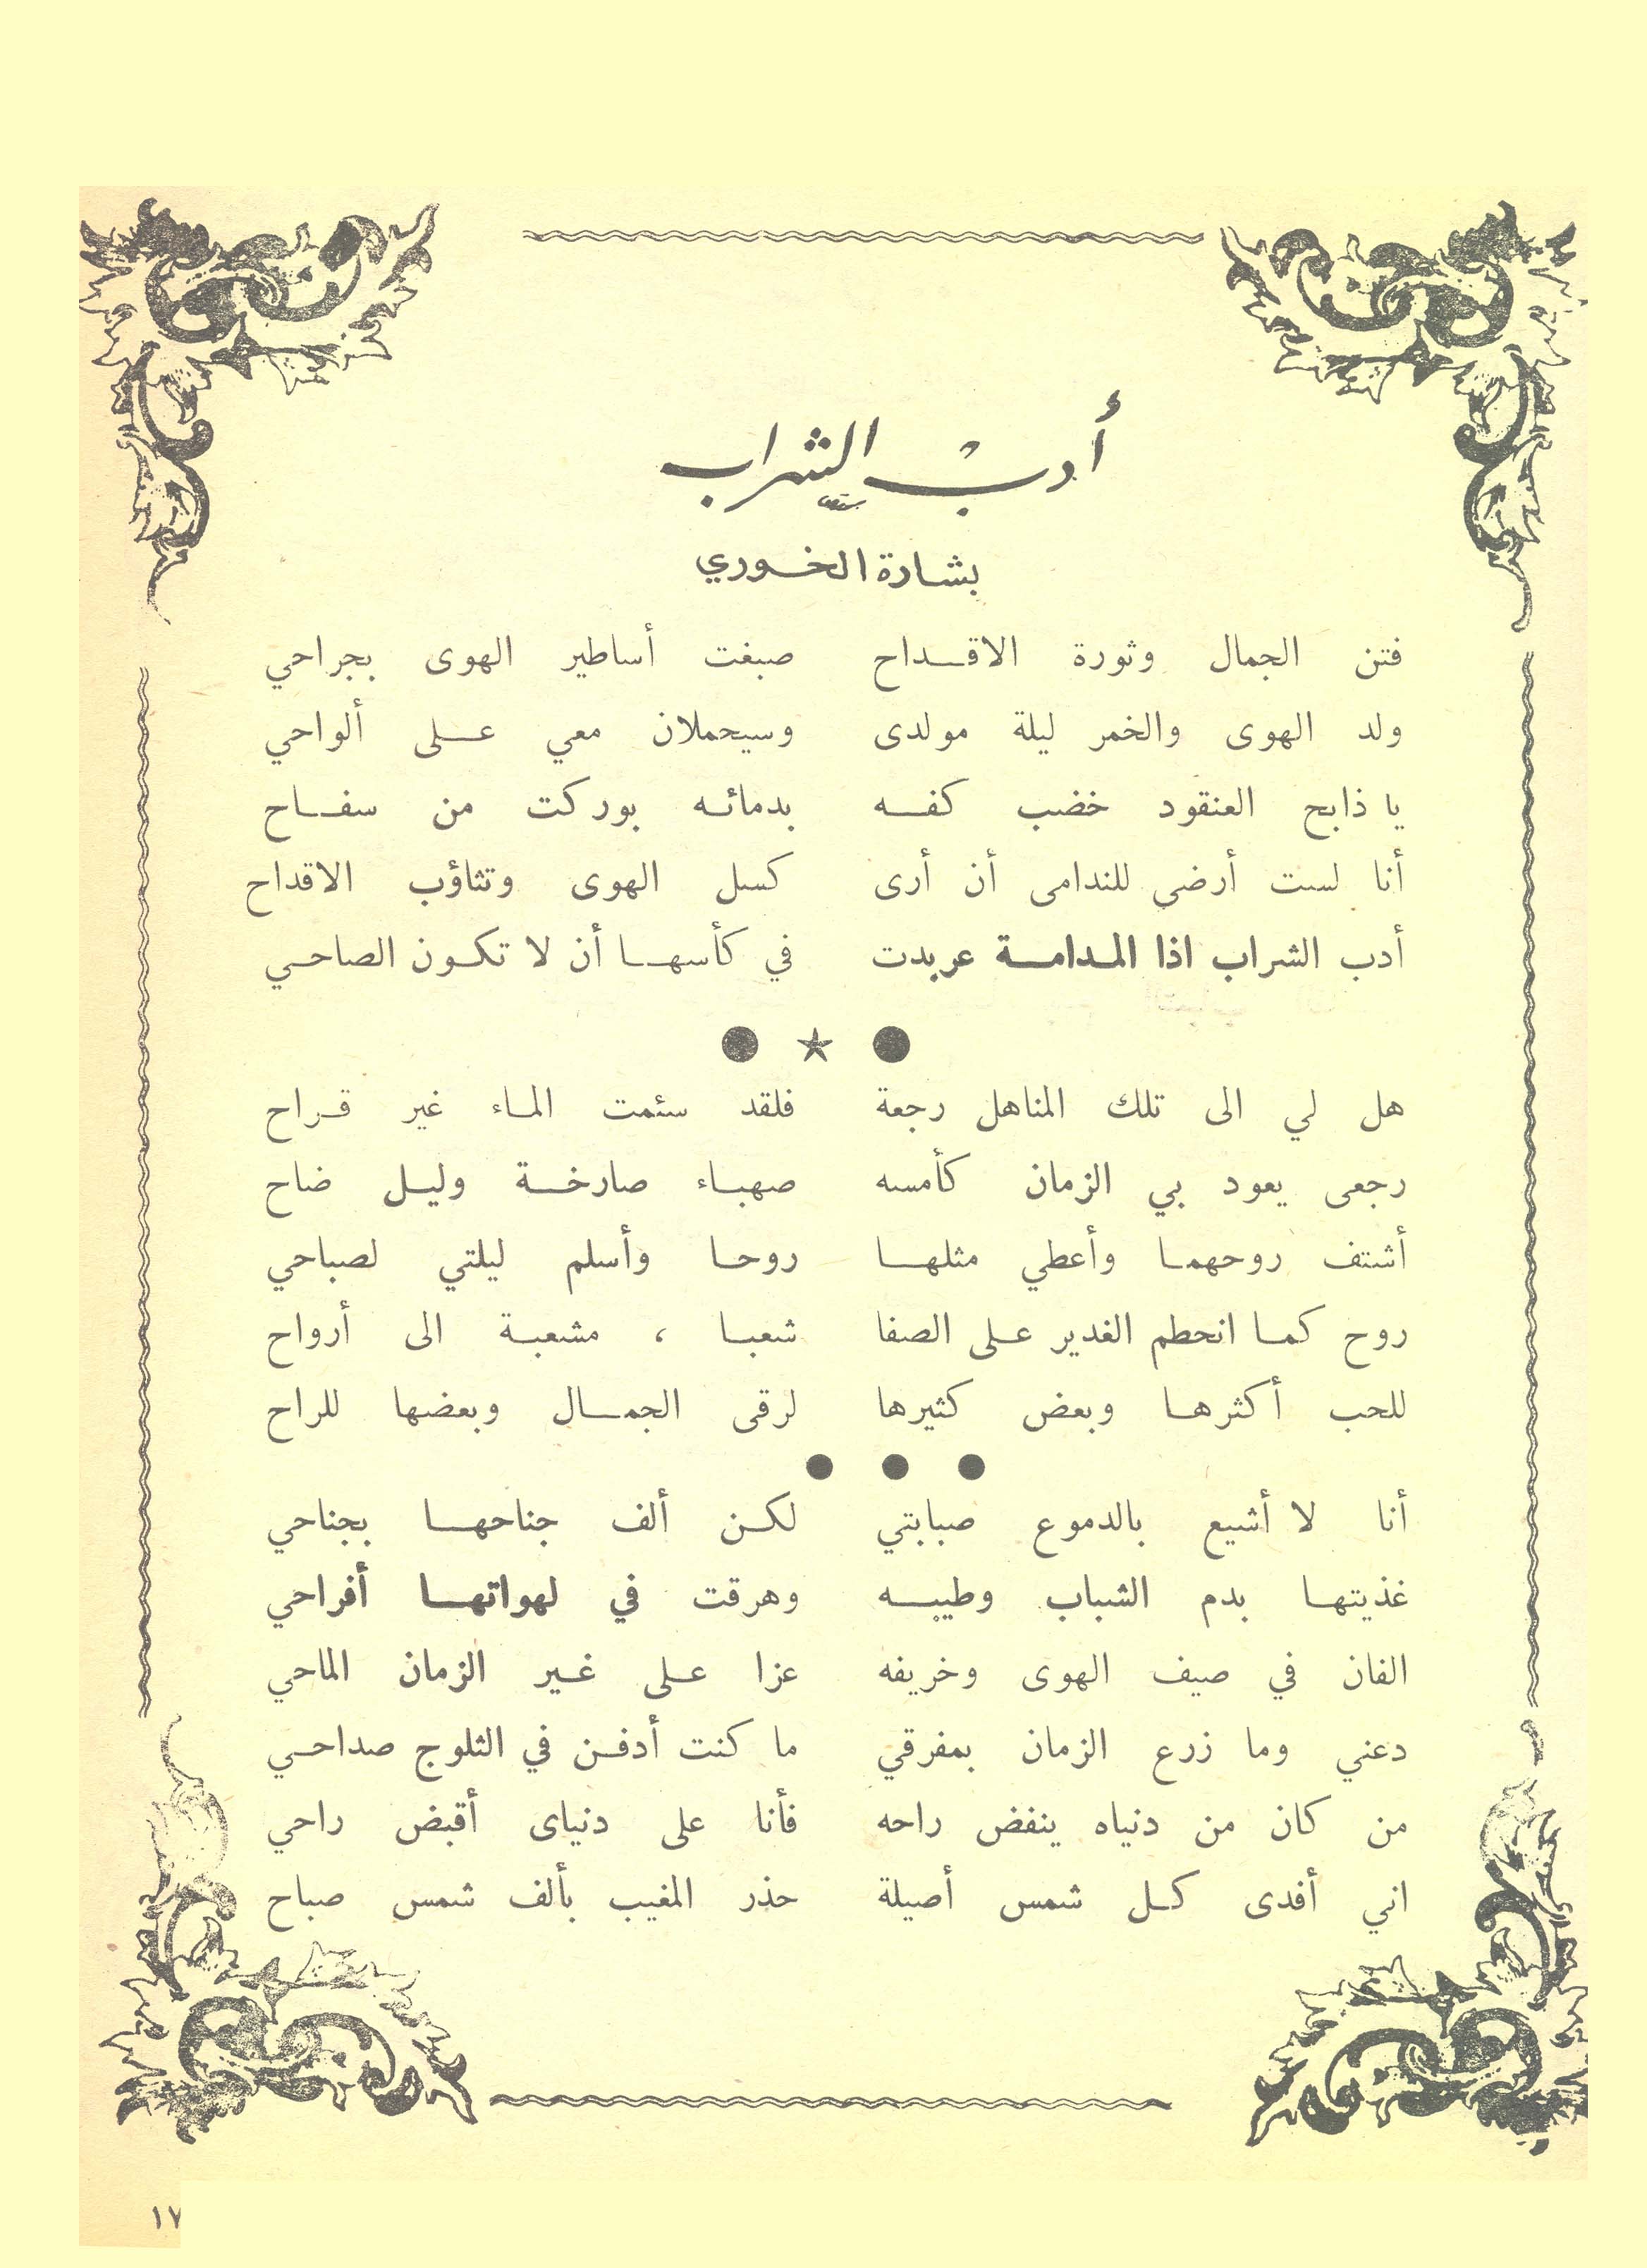 أدب الشراب
بشارة الخوري
فتن الجمال وثورة الاقـداح صبغت أساطير الهوى بجراحي
ولد الهوى والخمر ليلة مولدى وسيحملان معي عـلى ألواحي
يا ذابح العنقود خضب كفـه بدمائـه بوركت من سفـاح
أنا لست أرضى للندامى أن أرى كسل الهوى وتثاؤب الاقداح
أدب الشراب اذا المدامـة عربدت في كأسهـا أن لا تكـون الصاحـي
● ★ ●
هل لي الى تلك المناهل رجعة فلقد سئمت المـاء غير قـراح
رجعى يعود بي الزمان كأمسه صهبـاء صارخـة وليـل ضاح
أشتف روحهمـا وأعطي مثلهـا روحـا وأسلم ليلتي لصباحي
روح كمـا انحطم الغدير عـلى الصفا شعبـا ، مشعبـة الى أرواح
للحب أكثرهـا وبعض كثيرها لرقى الجمـال وبعضها للراح
● ● ●
أنا لا أشيع بالدموع صبابتي لكـن ألف جناحهـا بجناحي
غذيتهـا بدم الشباب وطيبـه وهرقت في لهواتهـا أفراحي
الفان في صيف الهوى وخريفه عزا عـلى غـير الزمان الماحي
دعني وما زرع الزمان بمفرقي ما كنت أدفـن في الثلوج صداحـي
من كان من دنياه ينفض راحه فأنا على دنياى أقبض راحي
اني أفدى كـل شمس أصيلة حذر المغيب بألف شمس صباح
١٧